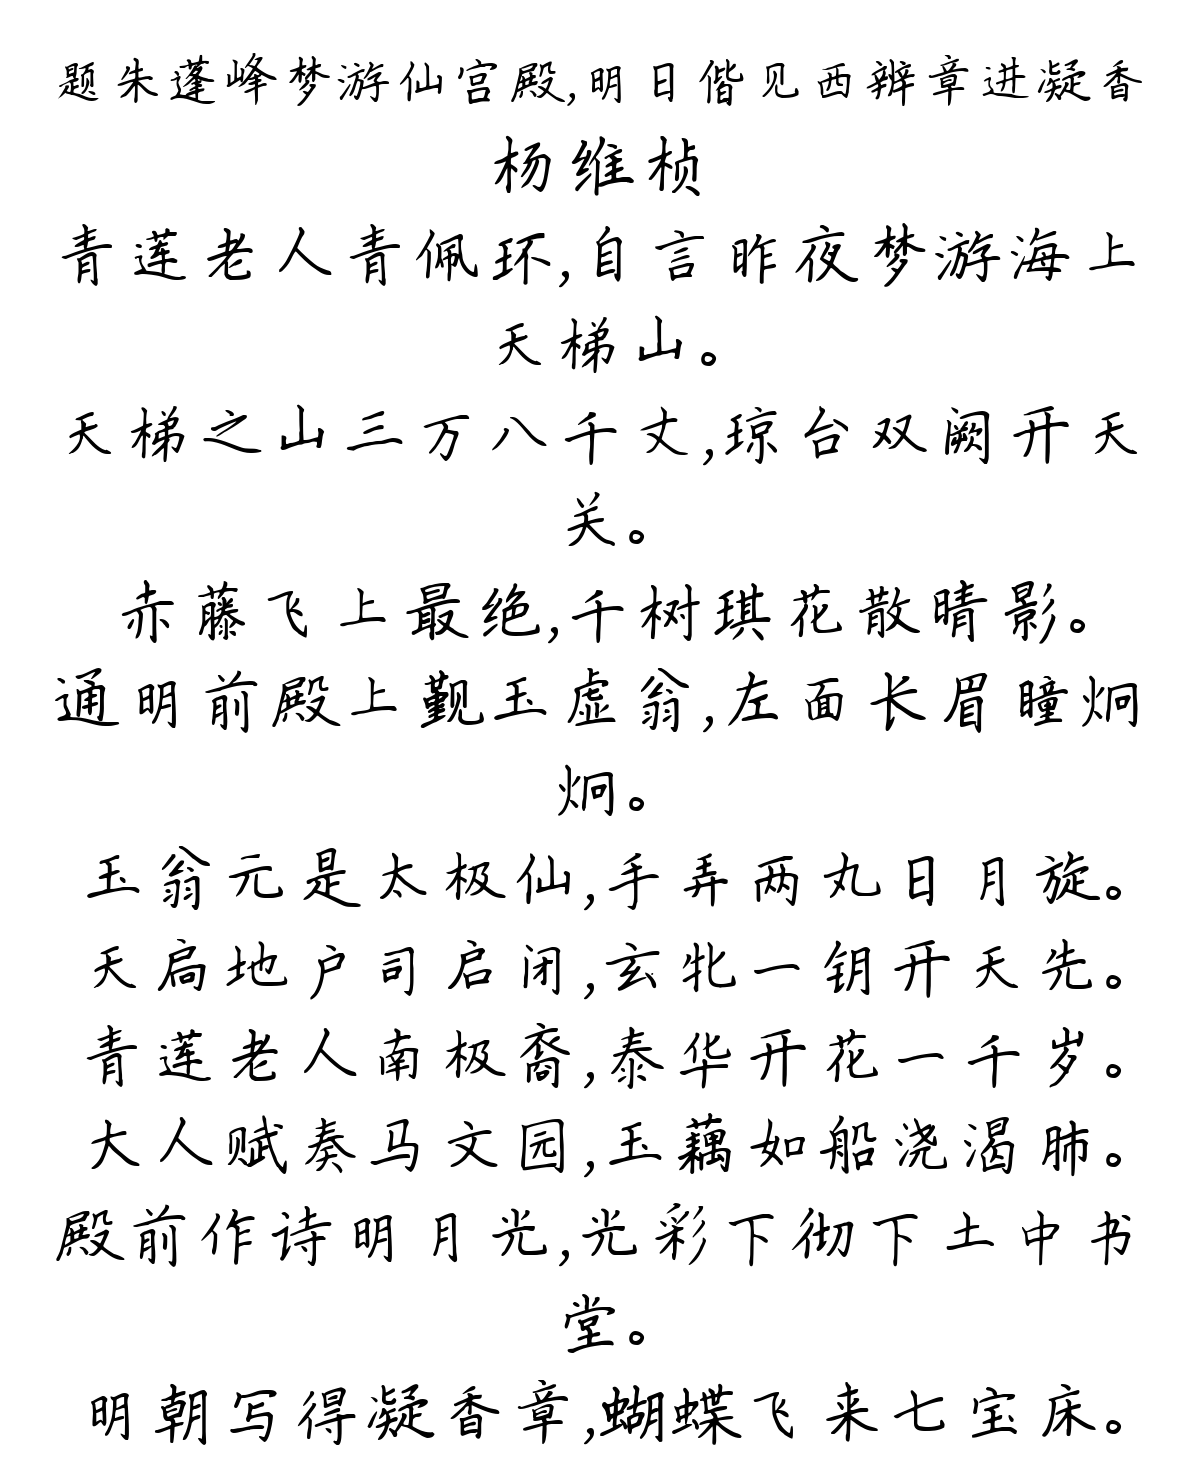 题朱蓬峰梦游仙宫殿,明日偕见西辨章进凝香
杨维桢
青莲老人青佩环,自言昨夜梦游海上
天梯山。
天梯之山三万八千丈,琼台双阙开天
关。
赤藤飞上最绝,千树琪花散晴影。
通明前殿上觐玉虚翁,左面长眉瞳炯
炯。
玉翁元是太极仙,手弄两丸日月旋。
天扃地户司启闭,玄牝一钥开天先。
青莲老人南极裔,泰华开花一千岁。
大人赋奏马文园,玉藕如船浇渴肺。
殿前作诗明月光,光彩下彻下土中书
堂。
明朝写得凝香章,蝴蝶飞来七宝床。